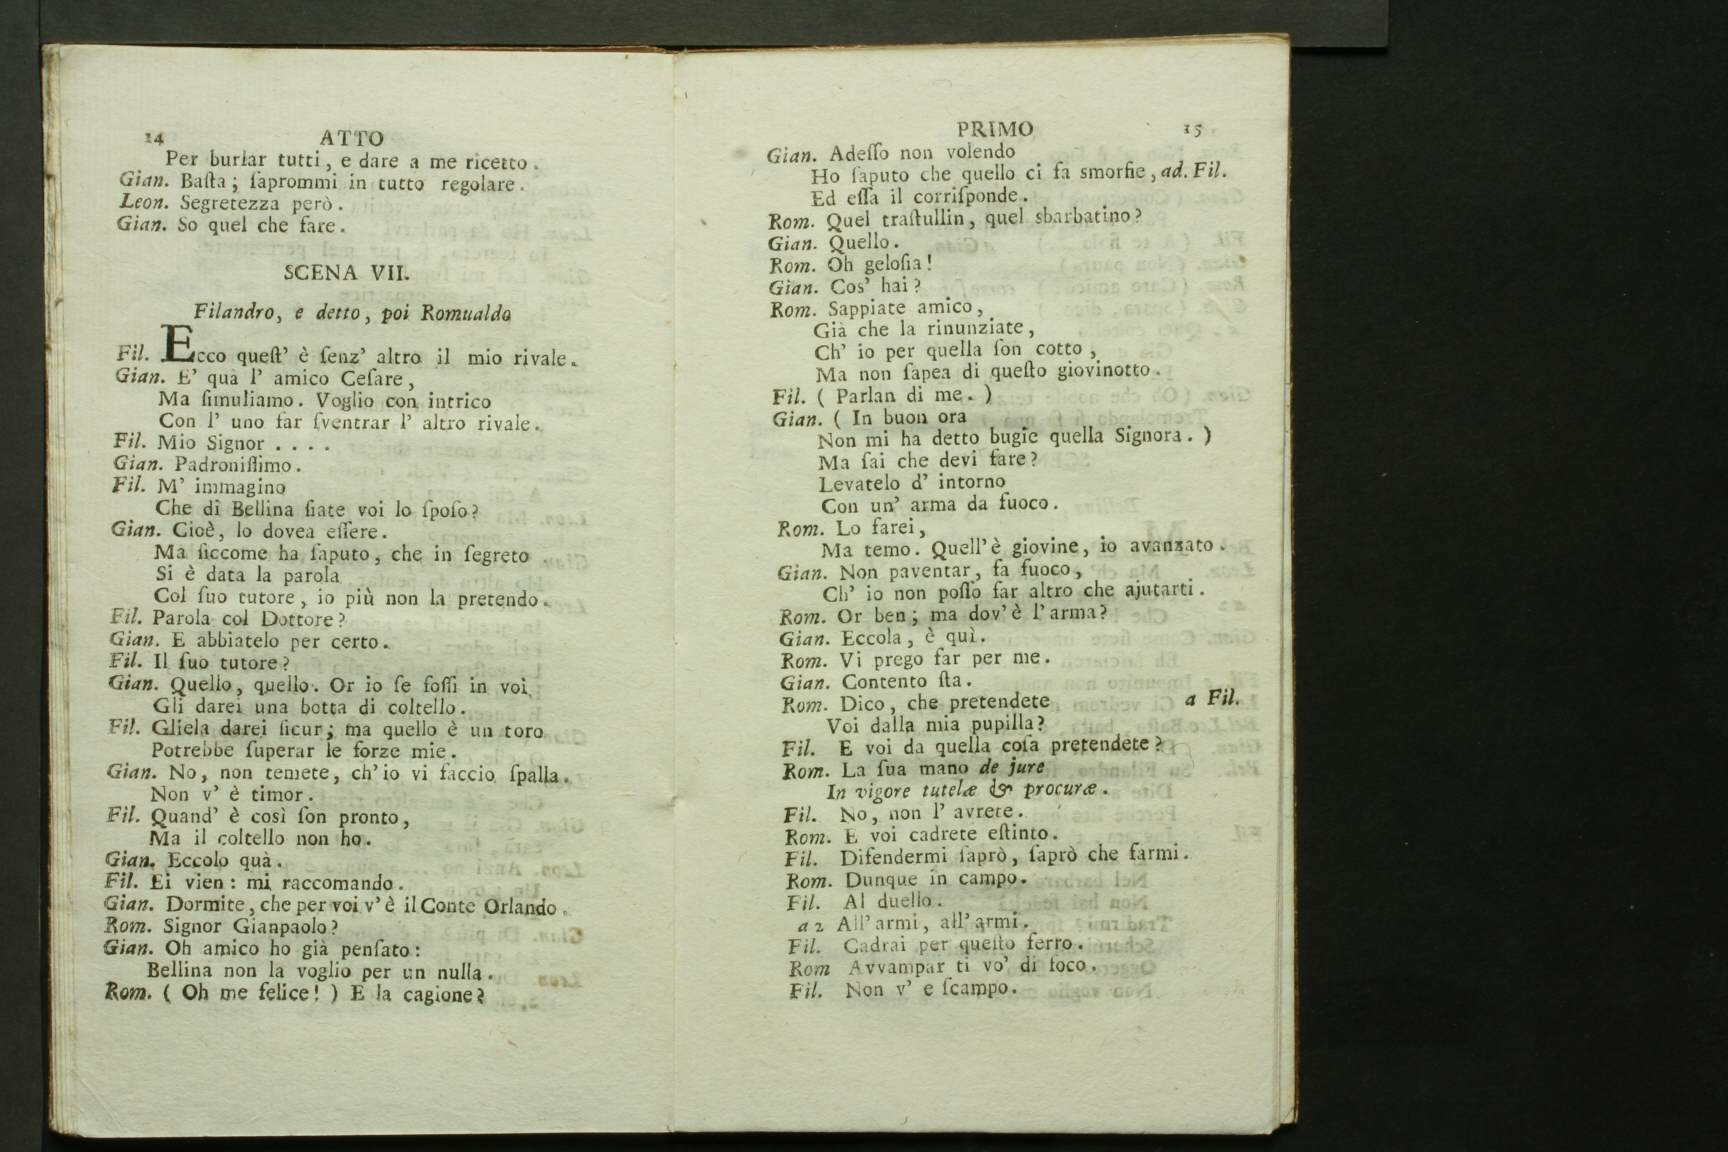 14 ATTO
Per burlar tutti, e dare a me ricetto.
Gian. Baſta; ſaprommi in tutto regolare.
Leon. Segretezza però.
Gian. So quel che fare.
SCENA VII.
Filandro, e detto, poi Romualdo
Fil. Ecco queſt' è ſenz' altro il mio rivale.
Gian. E' quà l' amico Ceſare,
Ma ſimuliamo. Voglio con intrico
Con l' uno far ſventrar l' altro rivale.
Fil. Mio Signor . . . .
Gian. Padroniſſimo.
Fil. M' immagino
Che di Bellina ſiate voi lo ſpoſo?
Gian. Cioè, lo dovea eſſere.
Ma ſiccome ha ſaputo, che in ſegreto
Si è data la parola
Col ſuo tutore, io più non la pretendo.
Fil. Parola col Dottore?
Gian. E abbiatelo per certo.
Fil. Il ſuo tutore?
Gian. Quello, quello. Or io ſe foſſi in voi
Gli darei una botta di coltello.
Fil. Gliela darei ſicur; ma quello è un toro
Potrebbe ſuperar le forze mie.
Gian. No, non temete, ch'io vi faccio ſpalla.
Non v' è timor.
Fil. Quand' è così ſon pronto,
Ma il coltello non ho.
Gian. Eccolo quà.
Fil. Ei vien: mi raccomando.
Gian. Dormite, che per voi v'è il Conte Orlando.
Rom. Signor Gianpaolo?
Gian. Oh amico ho già penſato:
Bellina non la voglio per un nulla.
Rom. ( Oh me felice! ) E la cagione?
PRIMO 15
Gian. Adeſſo non volendo
Ho ſaputo che quello ci fa smorfie, ad. Fil.
Ed eſſa il corriſponde.
Rom. Quel traſtullin, quel sbarbatino?
Gian. Quello.
Rom. Oh geloſia!
Gian. Cos' hai?
Rom. Sappiate amico,
Già che la rinunziate,
Ch' io per quella ſon cotto,
Ma non ſapea di queſto giovinotto.
Fil. ( Parlan di me. )
Gian. ( In buon ora
Non mi ha detto bugie quella Signora. )
Ma ſai che devi fare?
Levatelo d' intorno
Con un' arma da fuoco.
Rom. Lo farei,
Ma temo. Quell'è giovine, io avanzato.
Gian. Non paventar, fa fuoco,
Ch' io non poſſo far altro che ajutarti.
Rom. Or ben; ma dov'è l'arma?
Gian. Eccola, è quì.
Rom. Vi prego far per me.
Gian. Contento ſta.
Rom. Dico, che pretendete a Fil.
Voi dalla mia pupilla?
Fil. E voi da quella coſa pretendete?
Rom. La ſua mano de jure
In vigore tutelæ & procuræ.
Fil. No, non l' avrete.
Rom. E voi cadrete eſtinto.
Fil. Difendermi ſaprò, ſaprò che farmi.
Rom. Dunque in campo.
Fil. Al duello.
a 2 All'armi, all'armi.
Fil. Cadrai per queſto ferro.
Rom Avvampar ti vo' di foco.
Fil. Non v' e ſcampo.